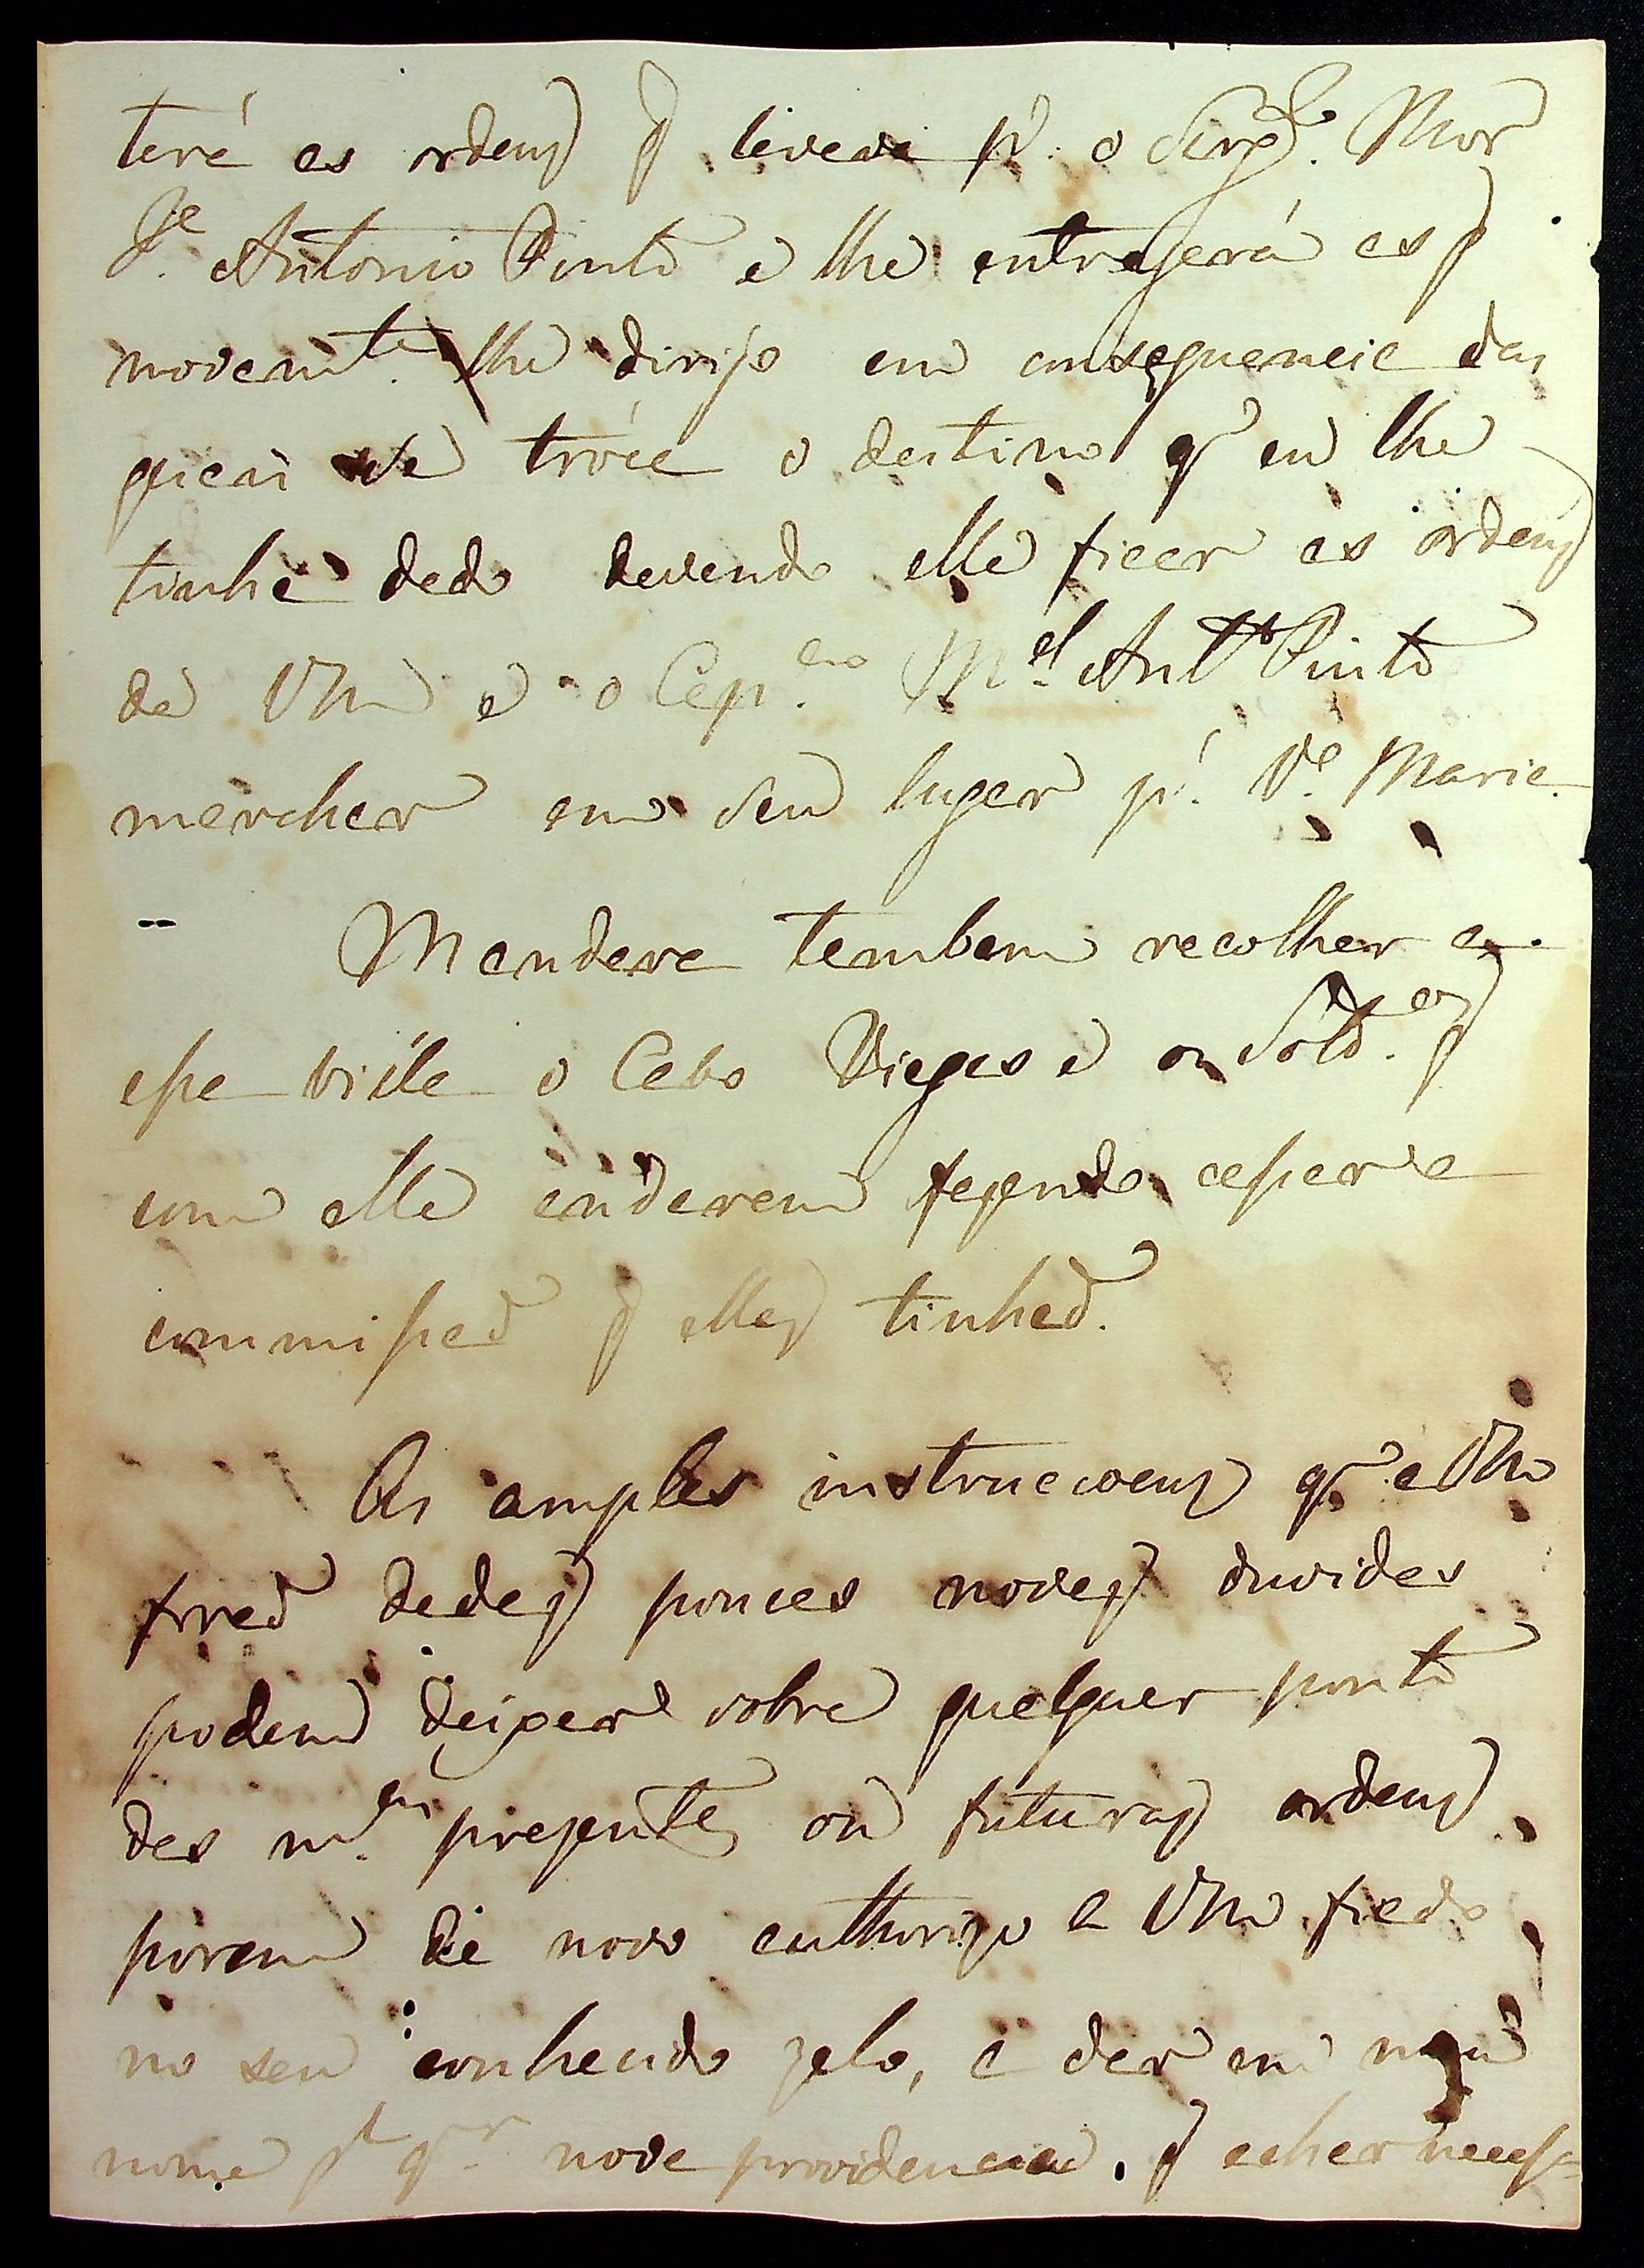 terá as ordens q̃ levava pᵃ. o Sargᵗᵒ. Mor
Jᵉ. Antonio Pinto e lhe entregará as q̃
novamᵗᵉ. lhe dirijo em consequencia das
quais se tróca o destino qᵉ eu lhe
tinha dado devendo elle ficar as ordens
de VM e o Capᵃᵐ. Mᵉˡ. Antᵒ Pinto
marchar em seu lugar pᵃ. Vᵃ. Maria.
Mandara tambem recolher a
essa villa o Cabo Viegas e os Soldᵒˢ. q̃
com elle andarem fazendo cessar a
commissaõ q̃ elles tinhaõ.
As amplas instrucçoens qᵉ a VM
foraõ dadas poucas novas duvidas
podem deixar sobre qualquer ponto
das mᵃˢ. prezentes ou futuras ordens
porem de novo authorizo a VM fiado
no seu conhecido zelo, a dar em meu
nome qˡ qʳ. nova providencia q̃ achar necess=